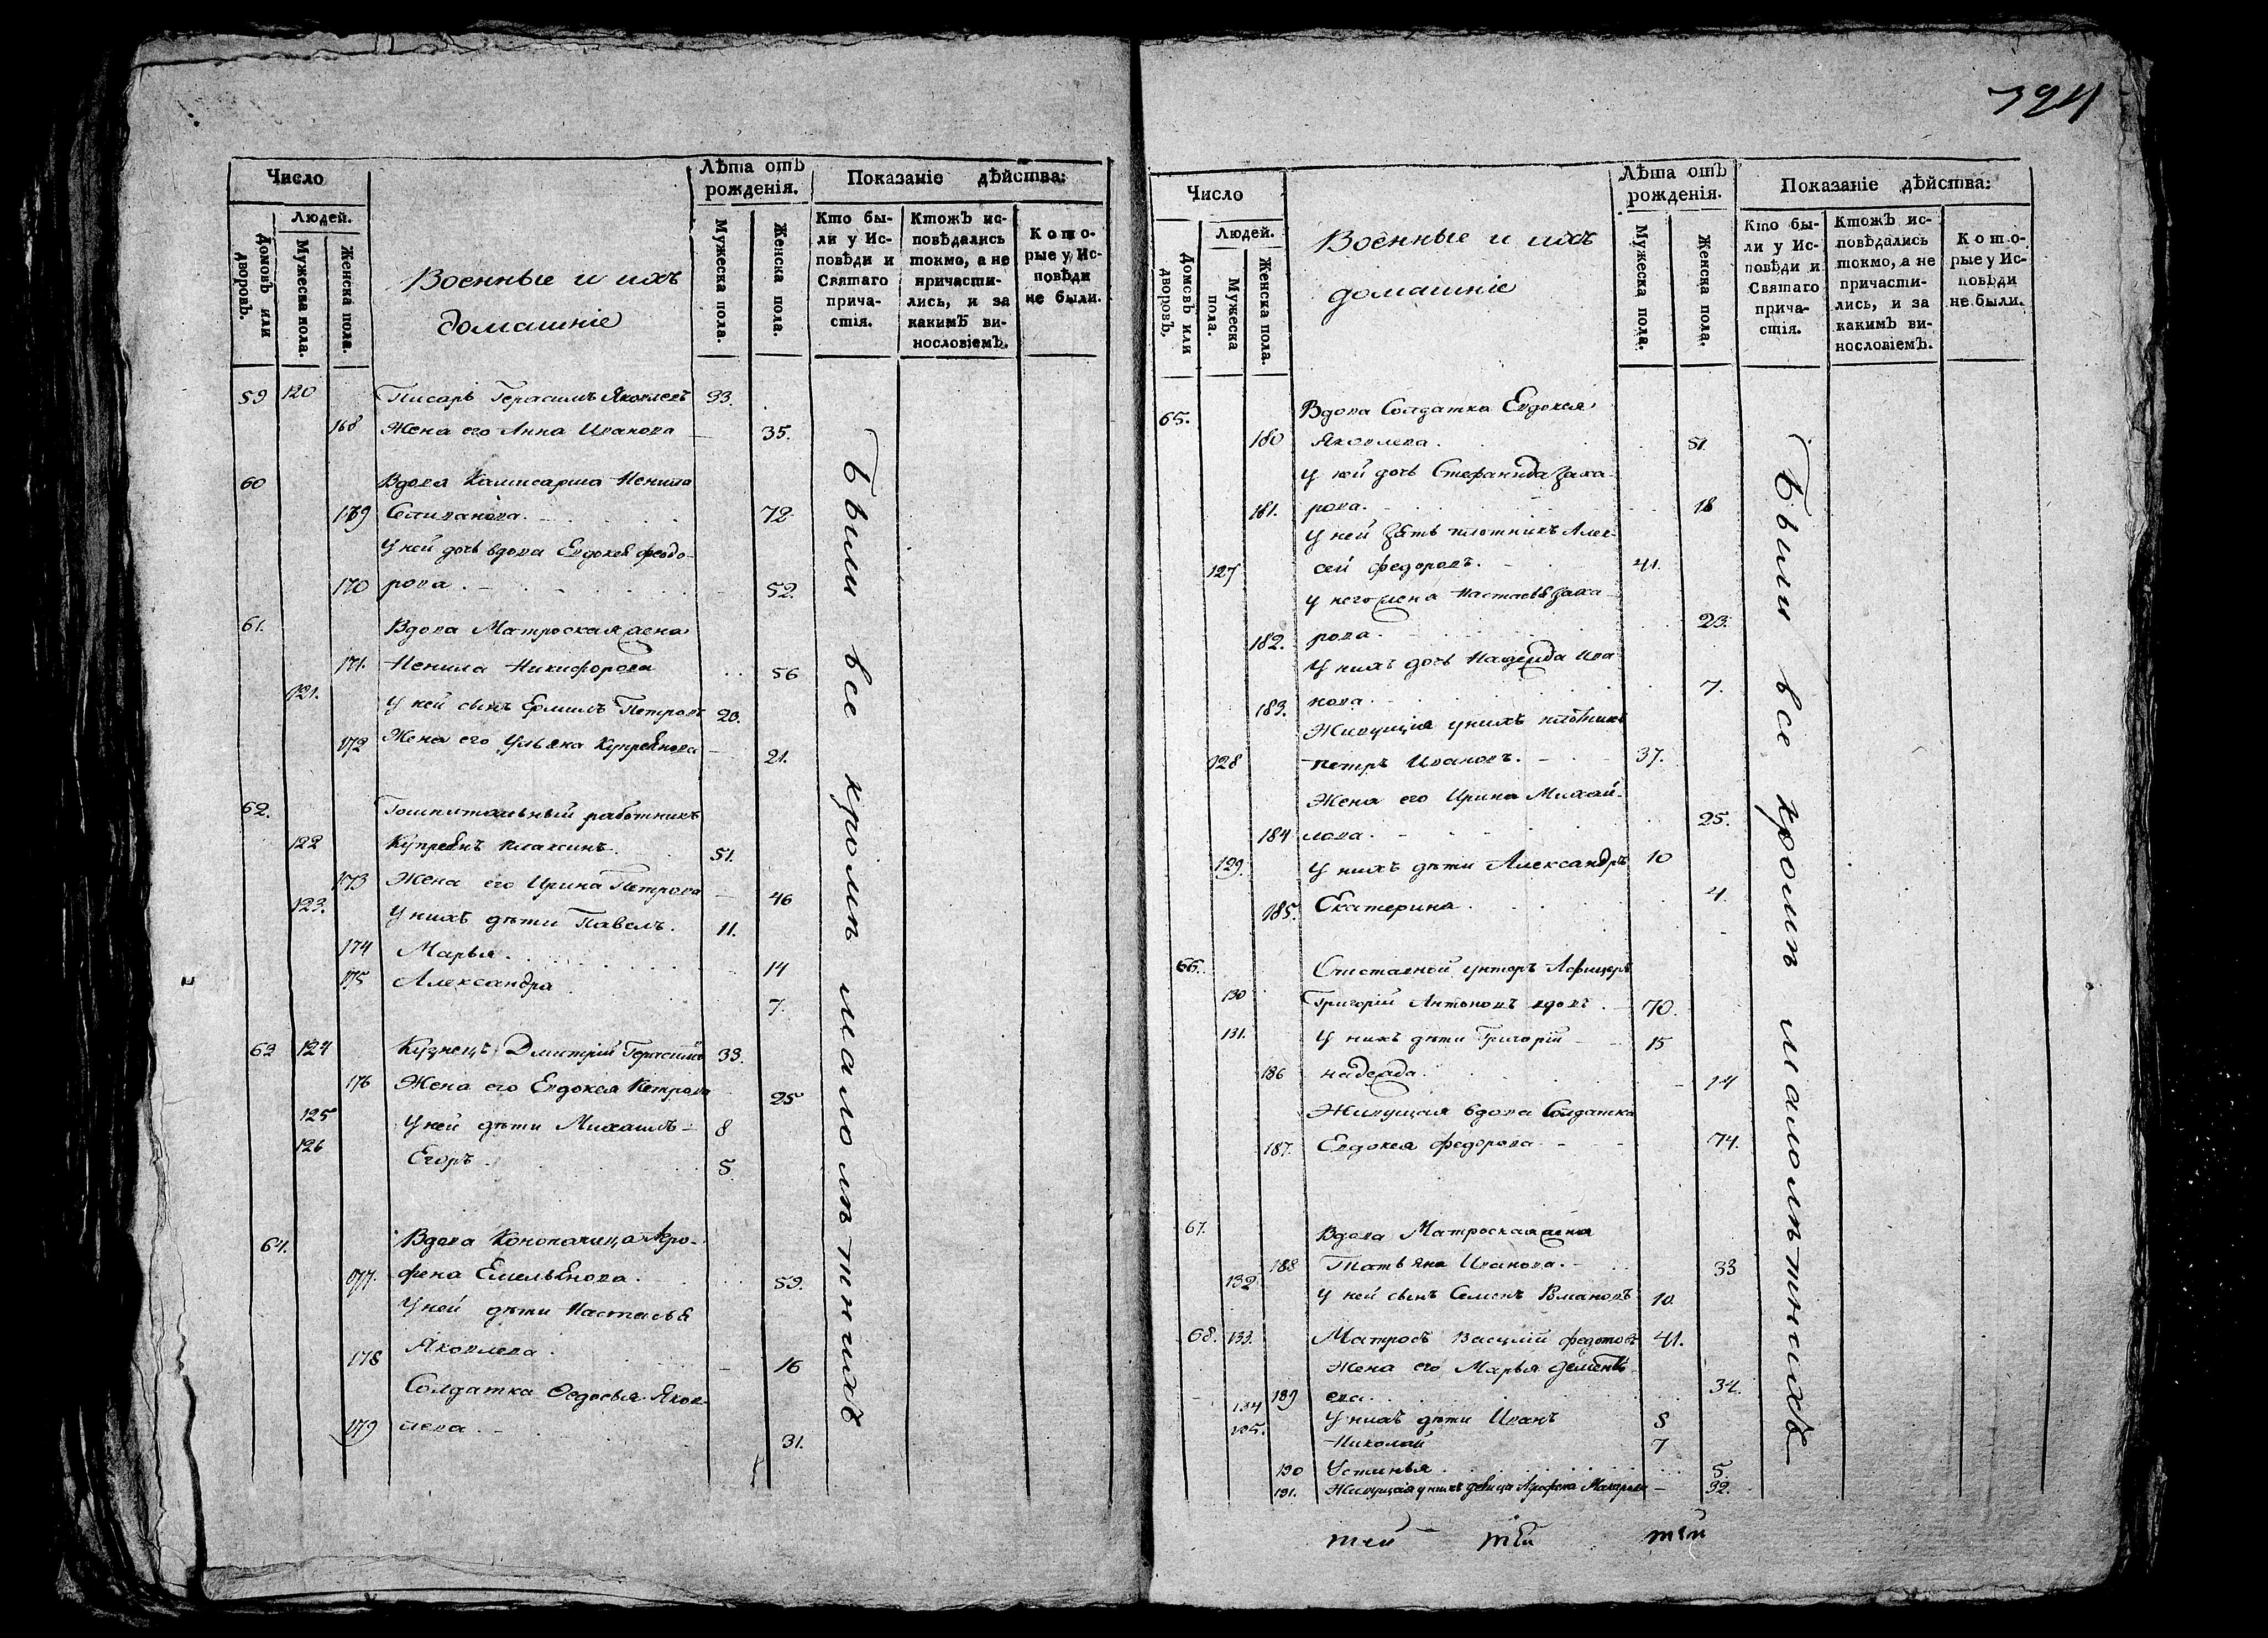 Число
Людей.
Домовъ или дворовъ.
Мужеска пола.
Женска пола.
Военные и ихъ
домашніе
Лѣта отъ
рожденія.
Мужеска пола.
Женска пола.
Показаніе дѣйства:
Кто бы-
ли у Ис-
повѣди и
Святаго
прича-
стія.
Ктожъ ис-
повѣдались
токмо, а не
причасти-
лись, и за
какимъ ви-
нословіемъ.
Кото-
рые у Ис-
повѣди
не были.
59 120 Писарь Герасимъ Яковлевъ 33.
168 Жена его Анна Иванова 35.
60 Вдова Камисарша Ненила
169 Степанова. 72
У ней дочь вдова Евдокея Феодо-
170 рова. 52.
61. Вдова Матроская жена
171. Ненила Никифорова 56
121. У ней сынъ Ермилъ Петровъ 20.
172 Жена его Ульяна Купреянова 21.
62. Гошпитальный работникъ
122 Купреянъ 51.
173 Жена его Ирина Петрова 46
123. У нихъ дѣти Павелъ. 11.
174 Марья. 14
175 Александра 7.
63 124 Кузнецъ Дмитрій Герасимъ 33.
176 Жена его Евдокея Петрова 25
125 У ней дѣти Михаилъ 8
126 Егоръ. 5.
64. Вдова Конопатица Агро-
177. фена Емельянова. 59.
У ней дѣти Настасья
178 Яковлева. 16
Солдатка Ѳедосья Яков-
179 лева. 31.
Были все кромѣ малолѣтнихъ
394
Число
Людей.
Домовъ или дворовъ.
Мужеска пола.
Женска пола.
Военные и ихъ
домашніе
Лѣта отъ
рожденія.
Мужеска пола.
Женска пола.
Показаніе дѣйства:
Кто бы-
ли у Ис-
повѣди и
Святаго
прича-
стія.
Ктожъ ис-
повѣдались
токмо, а не
причасти-
лись, и за
какимъ ви-
нословіемъ.
Кото-
рые у Ис-
повѣди
не были.
65. Вдова Солдатка Евдокея
180 Яковлева. 51.
У ней дочь Стефанида Заха-
181. рова. 18
У ней зять плотникъ Алек-
127 сей Федоровъ. 41.
У него жена Настасья Заха-
182. рова. 23.
У нихъ дочь Надежда Ива-
183. нова. 7.
Живущія у нихъ плотникъ
128 Петръ Ивановъ. 37.
Жена его Ирина Михай-
184 лова. 25.
129. У нихъ дѣти Александръ 10
185. Екатерина. 4.
66. Отставной унторъ Афицеръ
130 Григорій Антоновъ вдовъ. 70.
131. У нихъ дѣти Григорій 15
186 Надежда. 14
Живущая вдова Солдатка
187. Евдокея Федорова 74.
67. Вдова Матроская жена
188 Татьяна Иванова. 33
132 У ней сынъ Семенъ Романовъ 10.
68. 133. Матросъ Василій Федотовъ 41.
Жена его Марья Дементь-
189 ева. 34.
134 У нихъ дѣти Иванъ 8
135. Николай 7
190 Устинья. 5.
191. Живущая у нихъ девица Агрофена Макарова 32.
Были все кромѣ малолѣтнихъ
тей тей тей